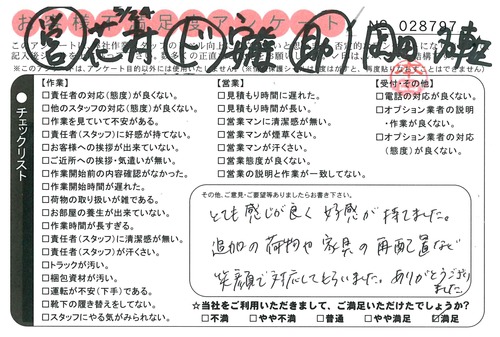 お客様不満足度アンケート
No 028797
チェックリスト
【作業】
□責任者の対応(態度)が良くない。
□他のスタッフの対応(態度)が良くない。
□作業を見ていて不安がある。
□責任者(スタッフ)に好感が持てない。
□お客様への挨拶が出来ていない。
□ご近所への挨拶・気遣いが無い。
□作業開始前の内容確認がなかった。
□作業開始時間が遅れた。
□荷物の取り扱いが雑である。
□お部屋の養生が出来ていない。
□作業時間が長すぎる。
□責任者(スタッフ)に清潔感が無い。
□責任者(スタッフ)が汗くさい。
□トラックが汚い。
□梱包資材が汚い。
□運転が不安(下手)である。
□靴下の履き替えをしてない。
□スタッフにやる気がみられない。
【営業】
□見積もり時間に遅れた。
□見積もり時間が長い。
□営業マンに清潔感が無い。
□営業マンが煙草くさい。
□営業マンが汗くさい。
□営業態度が良くない。
□営業の説明と作業が一致してない。
【受付・その他】
□電話の対応が良くない。
□オプション業者の説明
・作業が良くない。
□オプション業者の対応
(態度)が良くない。
その他、ご意見・ご要望等ありましたらお書き下さい。
とても感じが良く 好感が持てました。
追加の荷物や家具の再配置など
笑顔で対応してもらいました。ありがとうござい
ました
☆当社をご利用いただきまして、ご満足いただけたでしょうか?
□不満 □やや不満 □普通 □やや満足 ☑満足